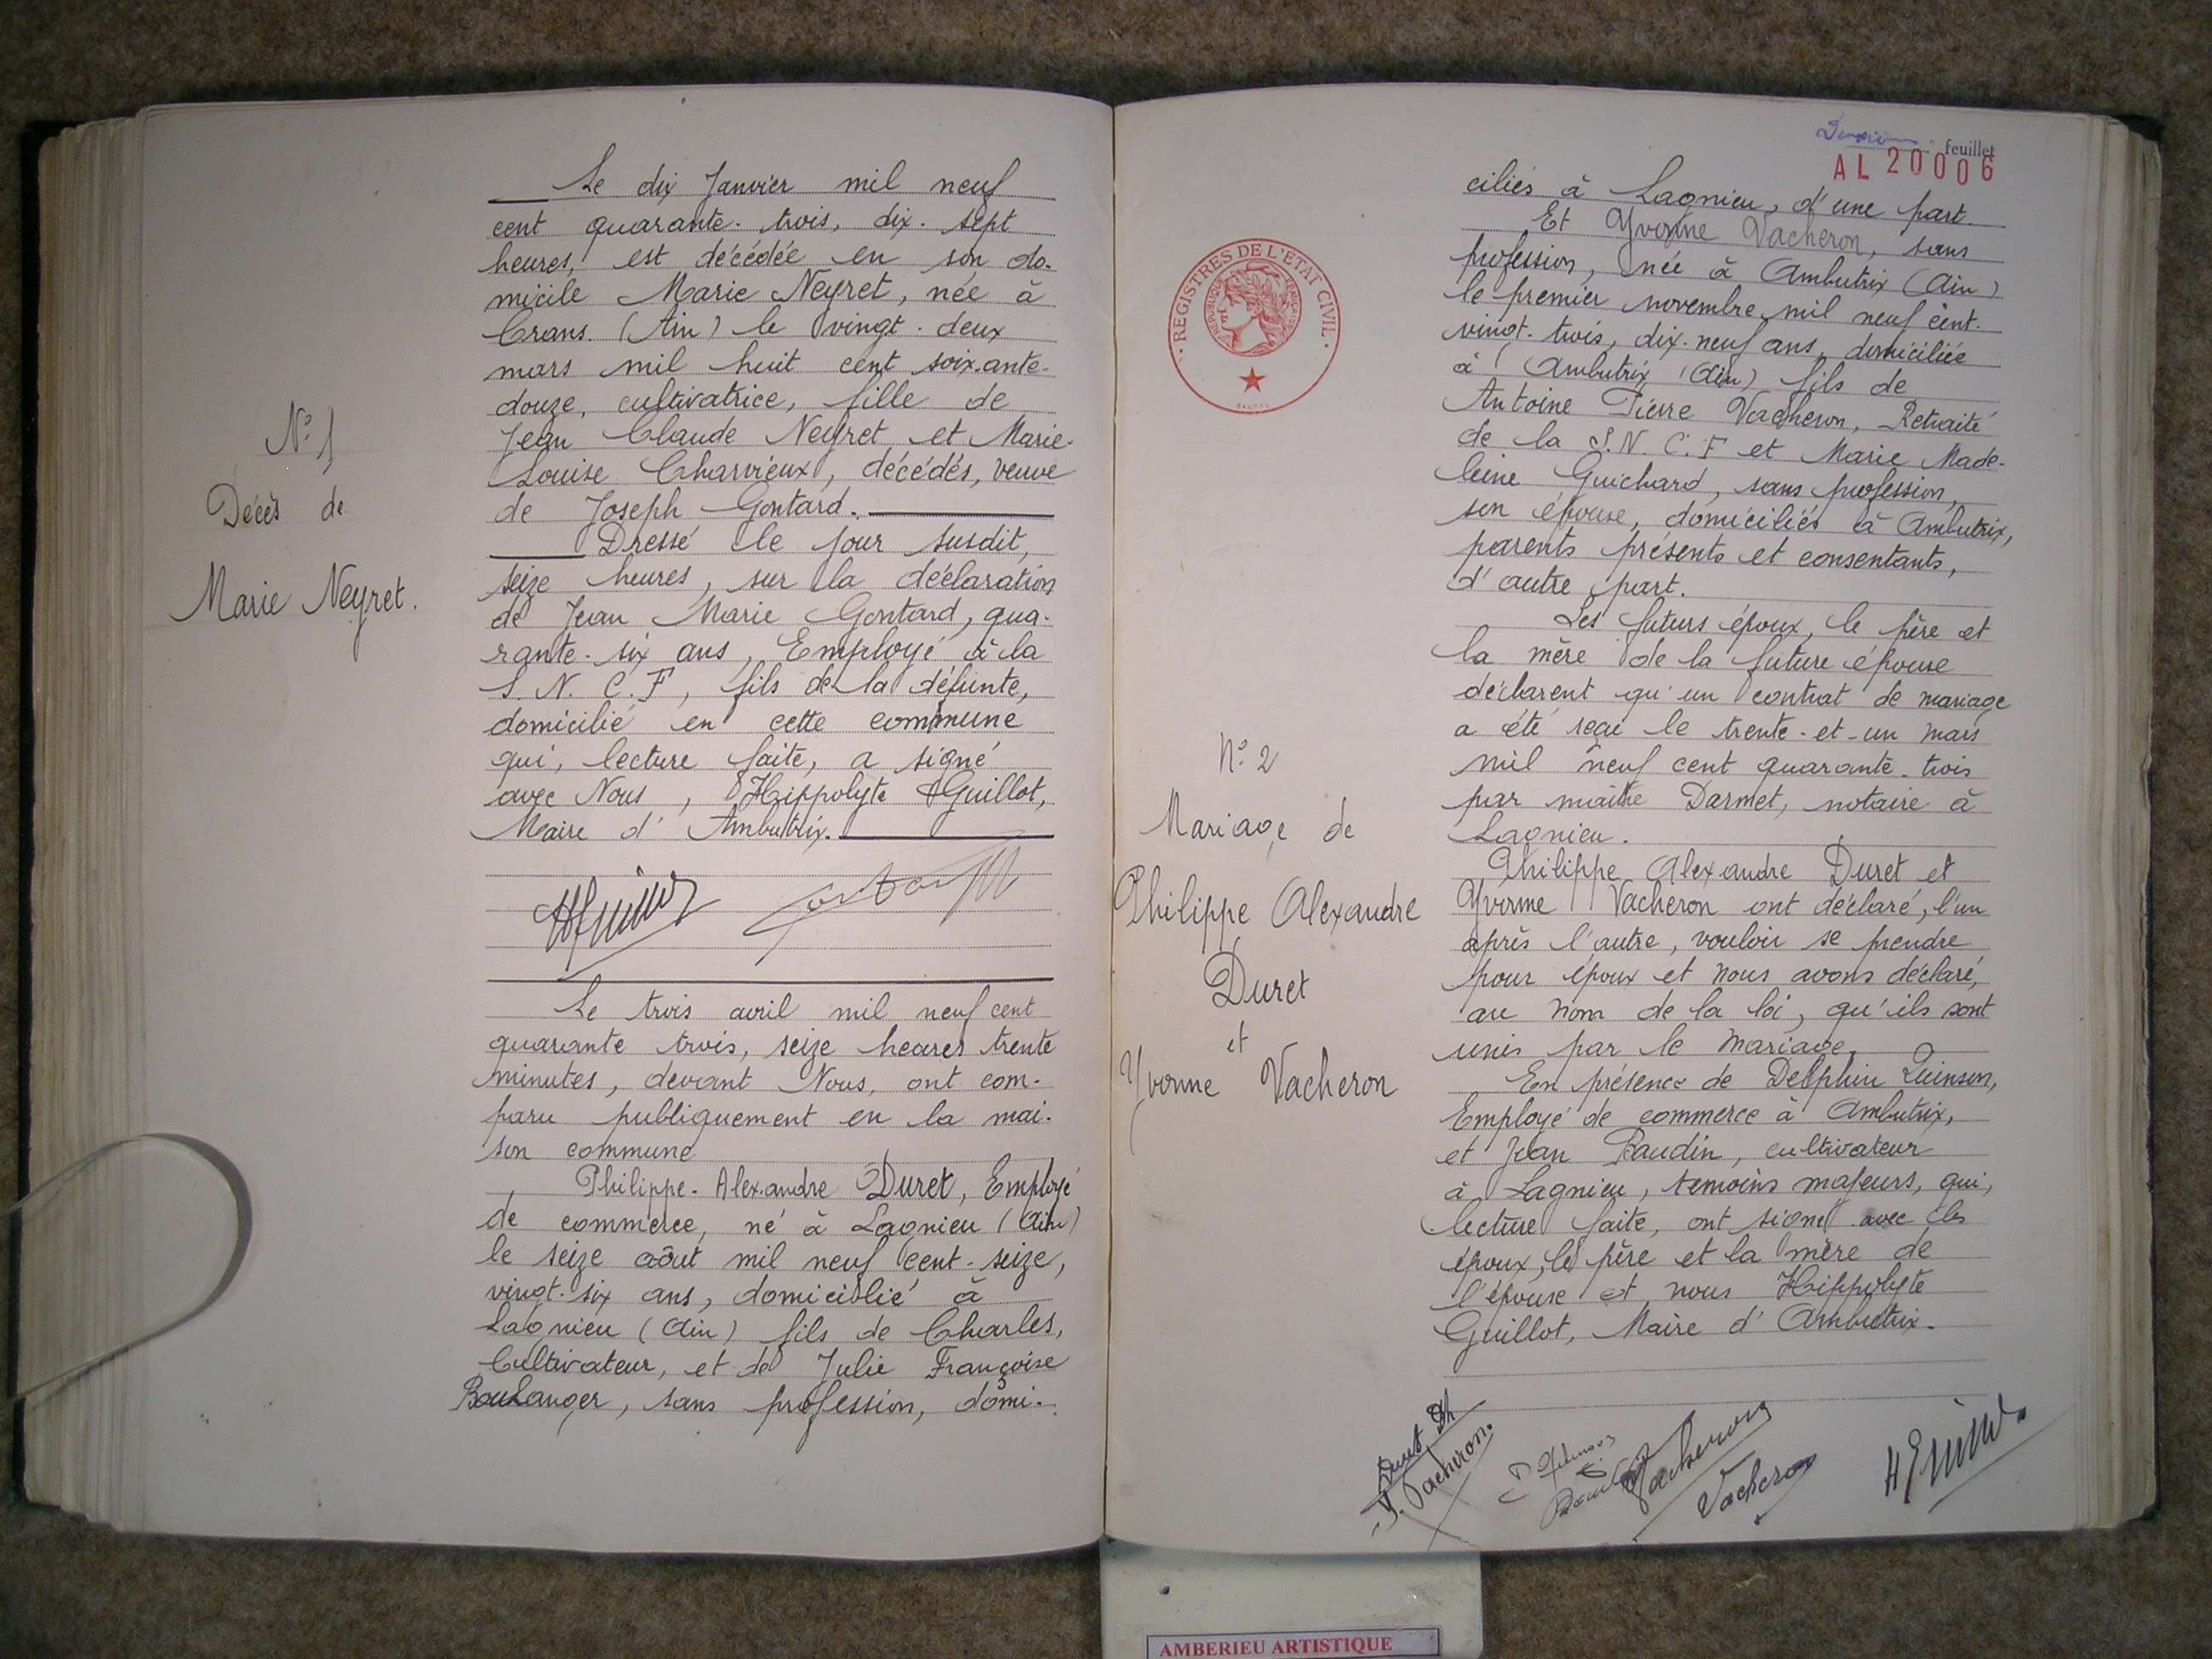 N° 1
Décès de
Marie Neyret.
Le dix Janvier mil neuf
cent quarante-trois, dix-sept
heures, est décédée en son do-
micile Marie Neyret, née à
Crans. (Ain) le vingt-deux
mars mil huit cent soixante-
douze, cultivatrice, fille de
Jean Claude Neyret et Marie-
Louise Charvieux, décédés, veuve
de Joseph Gontard.
Dressé le jour susdit,
seize heures, sur la déclaration
de Jean Marie Gontard, qua-
rante-six ans, Employé à la
S. N. C. F, fils de la défunte,
domicilié en cette commune
qui, lecture faite, a signé
avec Nous, Hippolyte Guillot,
Maire d'Ambutrix.
Le trois avril mil neuf cent
quarante trois, seize heures trente
minutes, devant Nous, ont com-
paru publiquement en la mai-
son commune
Philippe-Alexandre Duret, Employé
de commerce, né à Lagnieu (Ain)
le seize août mil neuf cent-seize,
vingt-six ans, domicilié à
Lagnieu (Ain) fils de Charles,
Cultivateur, et de Julie Françoise
Boulanger, sans profession, domi-
feuillet
AL 20006
REGISTRES DE L'ETAT CIVIL
N° 2
Mariage de
Philippe Alexandre
Duret
et
Yvonne Vacheron
ciliés à Lagnieu, d'une part.
Et Yvonne Vacheron, sans
profession, née à Ambutrix (Ain)
le premier novembre mil neuf cent-
vingt-trois, dix-neuf ans, domiciliée
à Ambutrix (Ain) fils de
Antoine Pierre Vacheron, Retraité
de la S.N.C.F et Marie Made-
leine Guichard, sans profession,
son épouse, domiciliés à Ambutrix,
parents présents et consentants,
d'autre part.
Les futurs époux, le père et
la mère de la future épouse
déclarent qu'un contrat de mariage
a été reçu le trente-et-un mars
mil neuf cent quarante-trois
par maître Darmet, notaire à
Lagnieu.
Philippe Alexandre Duret et
Yvonne Vacheron ont déclaré, l'un
après l'autre, vouloir se prendre
pour époux et nous avons déclaré,
au nom de la loi, qu'ils sont
unis par le mariage.
En présence de Delphin Quinson,
Employé de commerce à Ambutrix,
et Jean Baudin, cultivateur
à Lagnieu, témoins majeurs, qui,
lecture faite, ont signé avec les
époux, le père et la mère de
l'épouse et nous Hippolyte
Guillot, Maire d'Ambutrix.
Duret Ph
Y. Vacheron.
Vacheron
Vacheron
AMBERIEU ARTISTIQUE